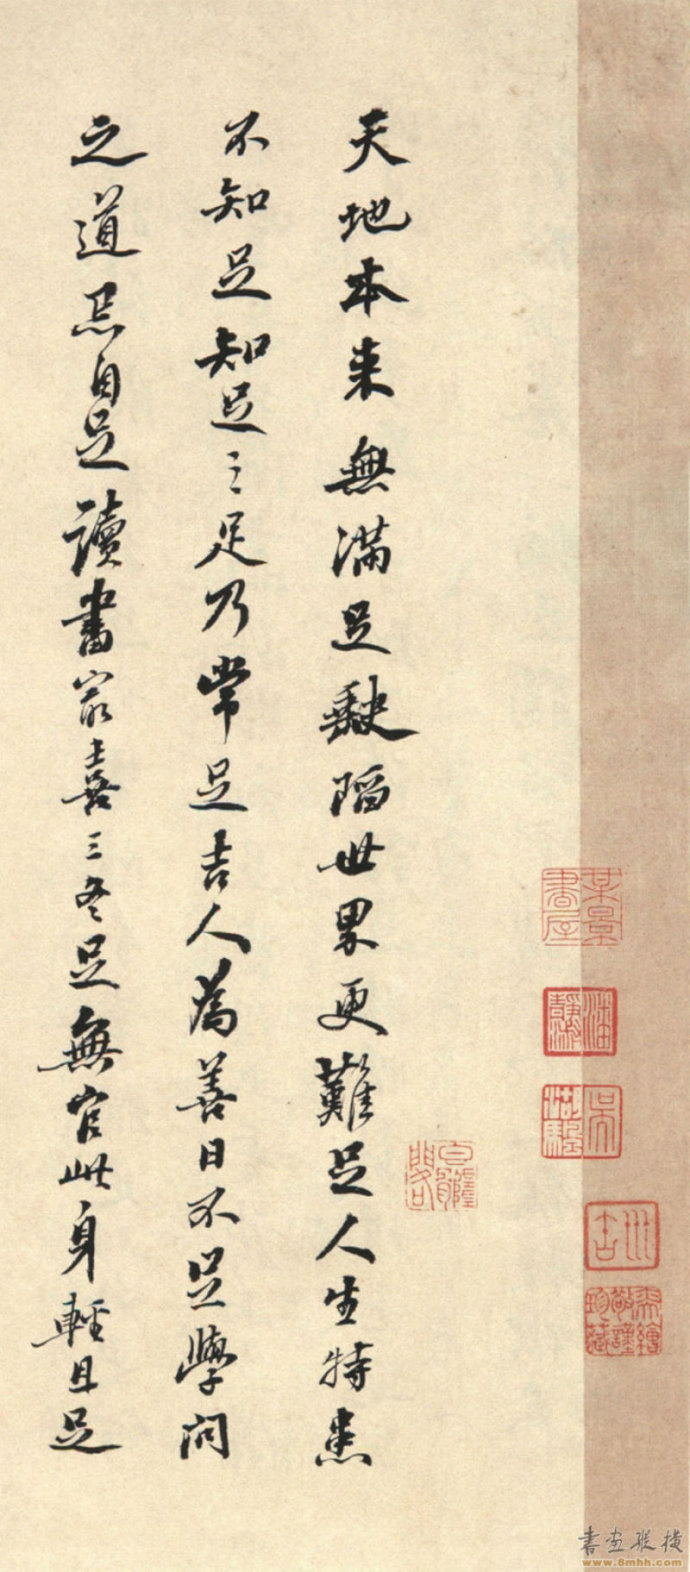 天地本来無滿足缺陷世界更難足人生特患
不知足知足之足乃常足吉人為善日不足學問
之道忌自足讀書最喜三冬足無官此身輕且足
書画縱橫
www.8mhh.com